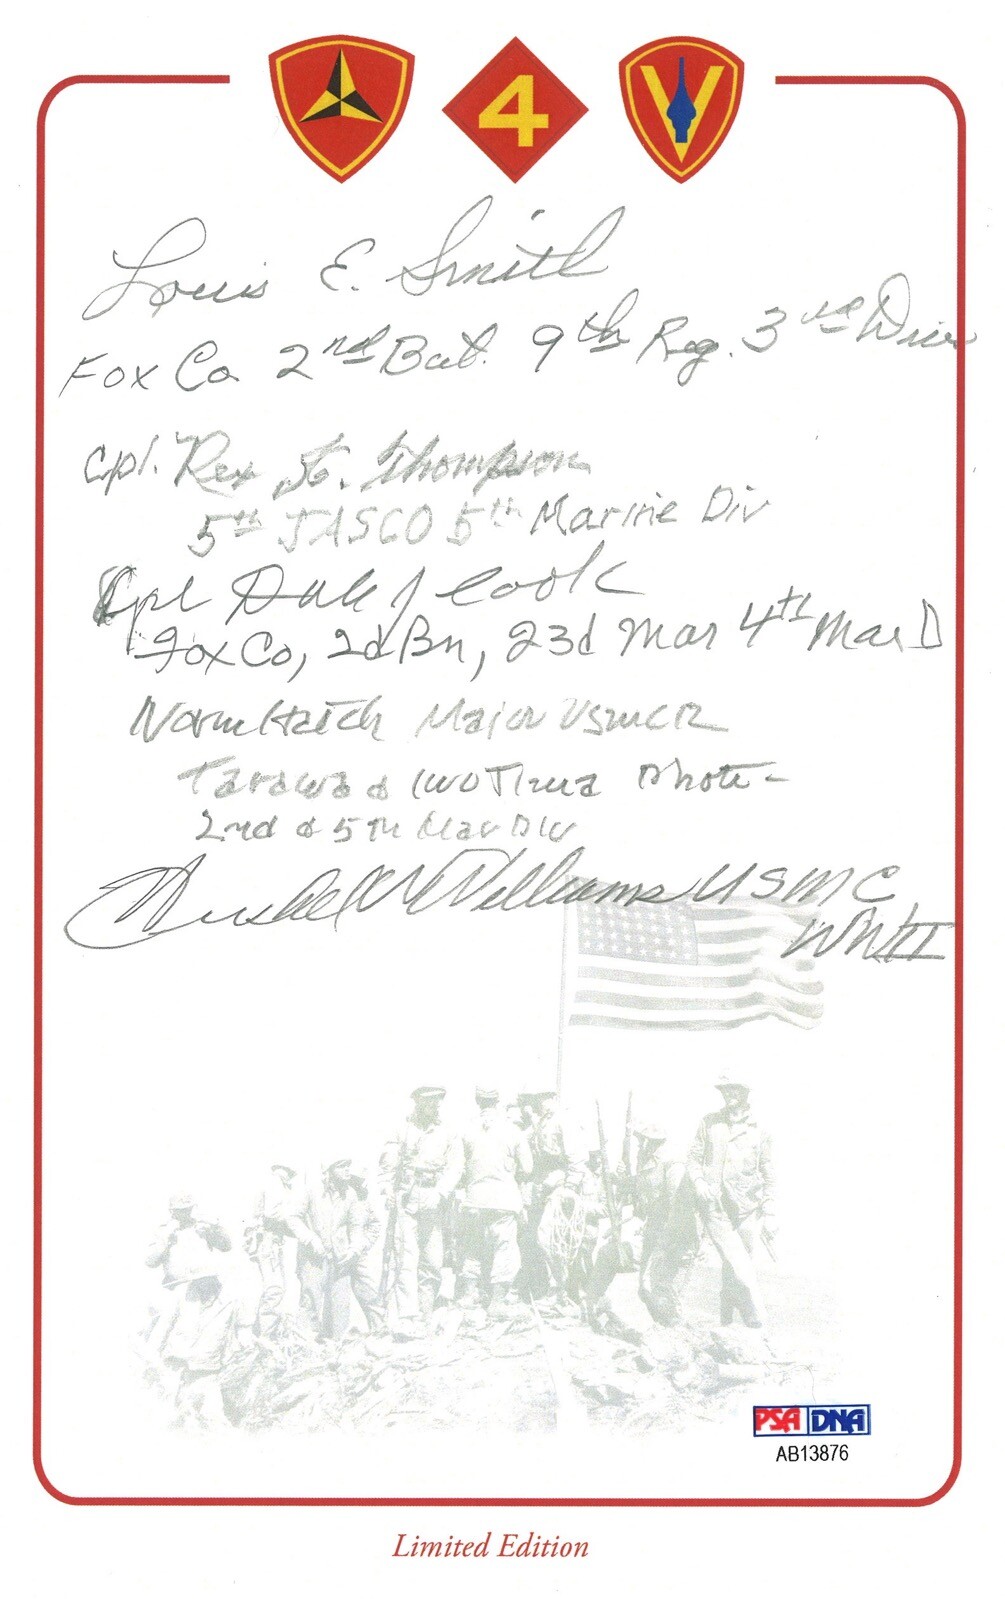 4
Louis E. Smith
Fox Co. 2nd Bat. 9th Reg. 3rd Div
Cpl. Rex St. Thompson
5th JASCO 5th Marine Div
Cpl Dale J Cook
Fox Co, 2d Bn, 23d Mar 4th Mar D
Norm Hatch Major USMCR
Tarawa & Iwo Jima Photo-
2nd & 5th Mar Div
Hershel W Williams USMC
WWII
PSA DNA
AB13876
Limited Edition